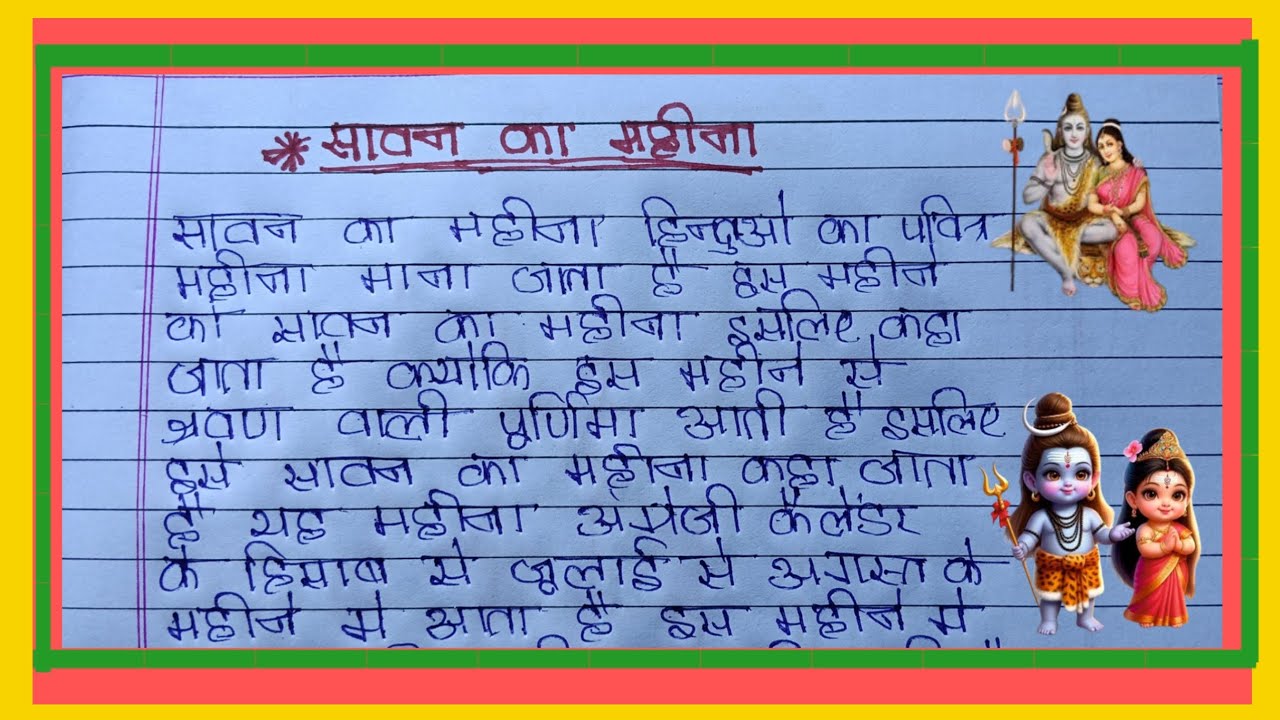 * सावन का महीना
सावन का महीना हिन्दुओ का पवित्र
महीना माना जाता है इस महीने
को सावन का महीना इसलिए कहा
जाता है क्योकि इस महीने से
श्रवण वाली पूर्णिमा आती है इसलिए
इसे सावन का महीना कहा जाता
है यह महीना अंग्रेजी कैलेंडर
के हिसाब से जूलाई से अगस्त के
महीने मे आता है इस महीने मे